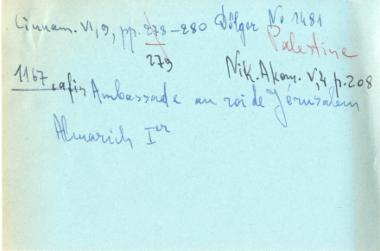 Cinnam. VI, 9, pp. 278-280 Dölger No 1481
279
Palestine
Nik. Akom. V, 4 p. 208
1167, afin Ambassade au roi de Jérusalem
Almarich Ier